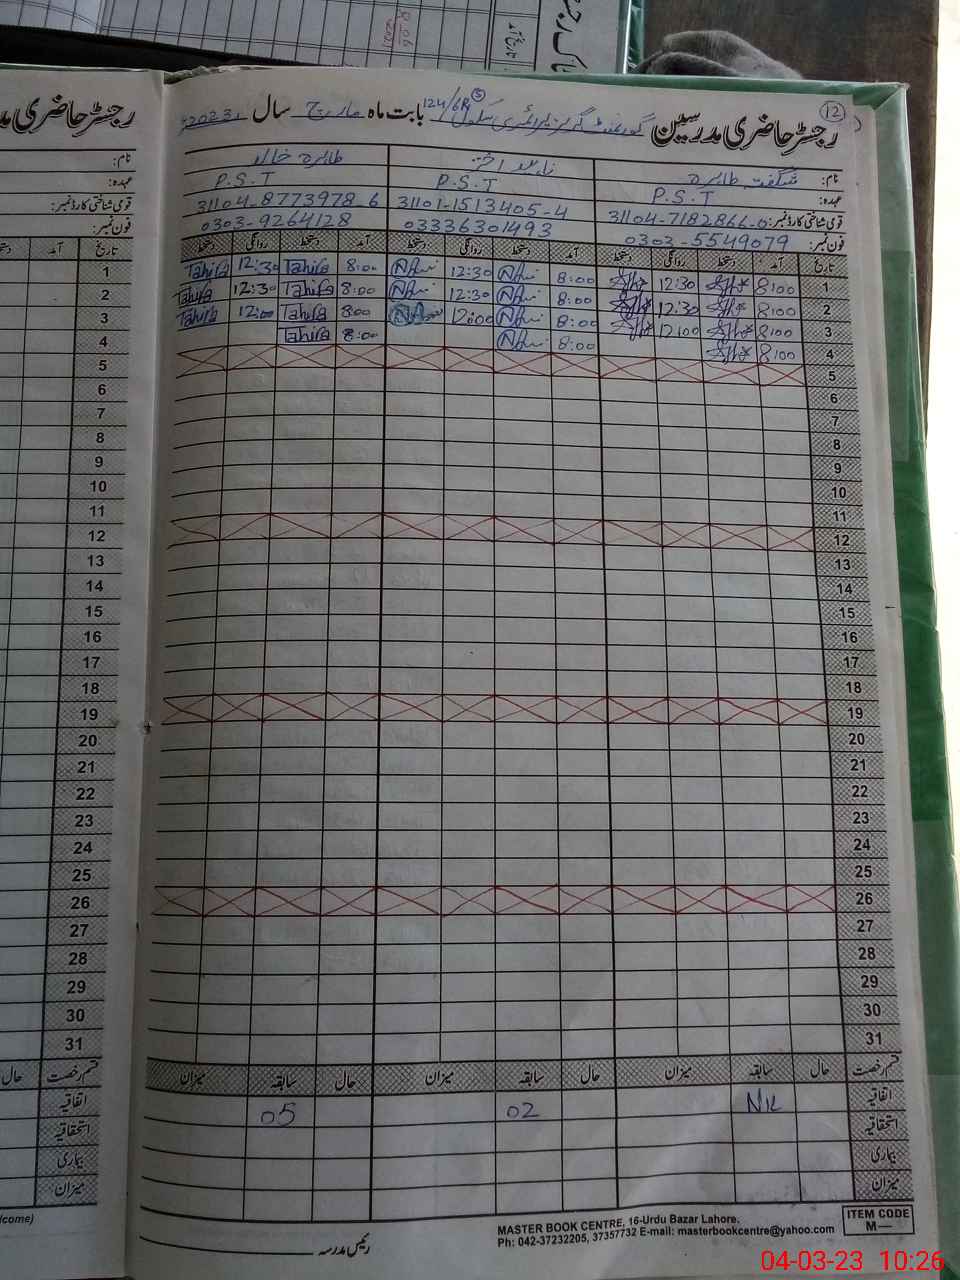 رجسٹر حاضری مدرسین گورنمنٹ گرلز پرائمری سکول 124/6R بابت ماہ مارچ سال 2023ء
12
نام: شگفتہ طاہرہ طاہرہ خالد
عہدہ: P.S.T P.S.T P.S.T
قومی شناختی کارڈ نمبر: 31104-7182866-0 31101-1513405-4 31104-8773978-6
فون نمبر: 0303-5549079 03336301493 0303-9264128
تاریخ آمد دستخط روانگی دستخط آمد دستخط روانگی دستخط آمد دستخط روانگی دستخط
1 8:00 12:30 8:00 12:30 8:00 Tahira 12:30 Tahira
2 8:00 12:30 8:00 12:30 8:00 Tahira 12:30 Tahira
3 8:00 12:00 8:00 12:00 8:00 Tahira 12:00 Tahira
4 8:00 8:00 8:00 Tahira
5
6
7
8
9
10
11
12
13
14
15
16
17
18
19
20
21
22
23
24
25
26
27
28
29
30
31
قسم رخصت حال سابقہ میزان حال سابقہ میزان حال سابقہ میزان
اتفاقیہ Nil 02 05
استحقاقیہ
بیماری
میزان
رئیس مدرسہ
MASTER BOOK CENTRE, 16-Urdu Bazar Lahore.
Ph: 042-37232205, 37357732 E-mail: masterbookcentre@yahoo.com
ITEM CODE
M—
04-03-23 10:26